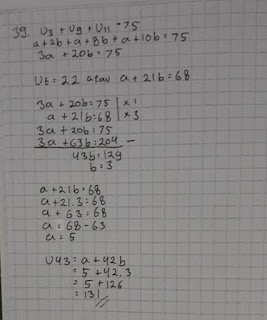 39. U3 + U9 + U11 = 75
a+2b+a+8b+a+10b = 75
3a + 20b = 75
Ut = 22 atau a + 21b = 68
3a + 20b = 75 | x 1
a + 21b = 68 | x 3
3a + 20b = 75
3a + 63b = 204 -
43b = 129
b = 3
a + 21b = 68
a + 21.3 = 68
a + 63 = 68
a = 68 - 63
a = 5
U43 = a + 42b
= 5 + 42.3
= 5 + 126
= 131 //